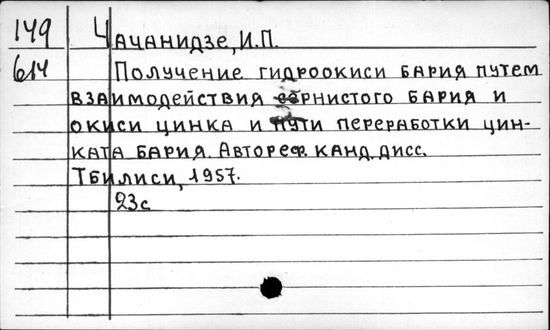 149 Чачанидзе, И.П.
614 Получение гидроокиси бария путем
взаимодействия сернистого бария и
окиси цинка и пути переработки цин-
ката бария. Автореф. канд. дисс.
Тбилиси, 1957.
23с